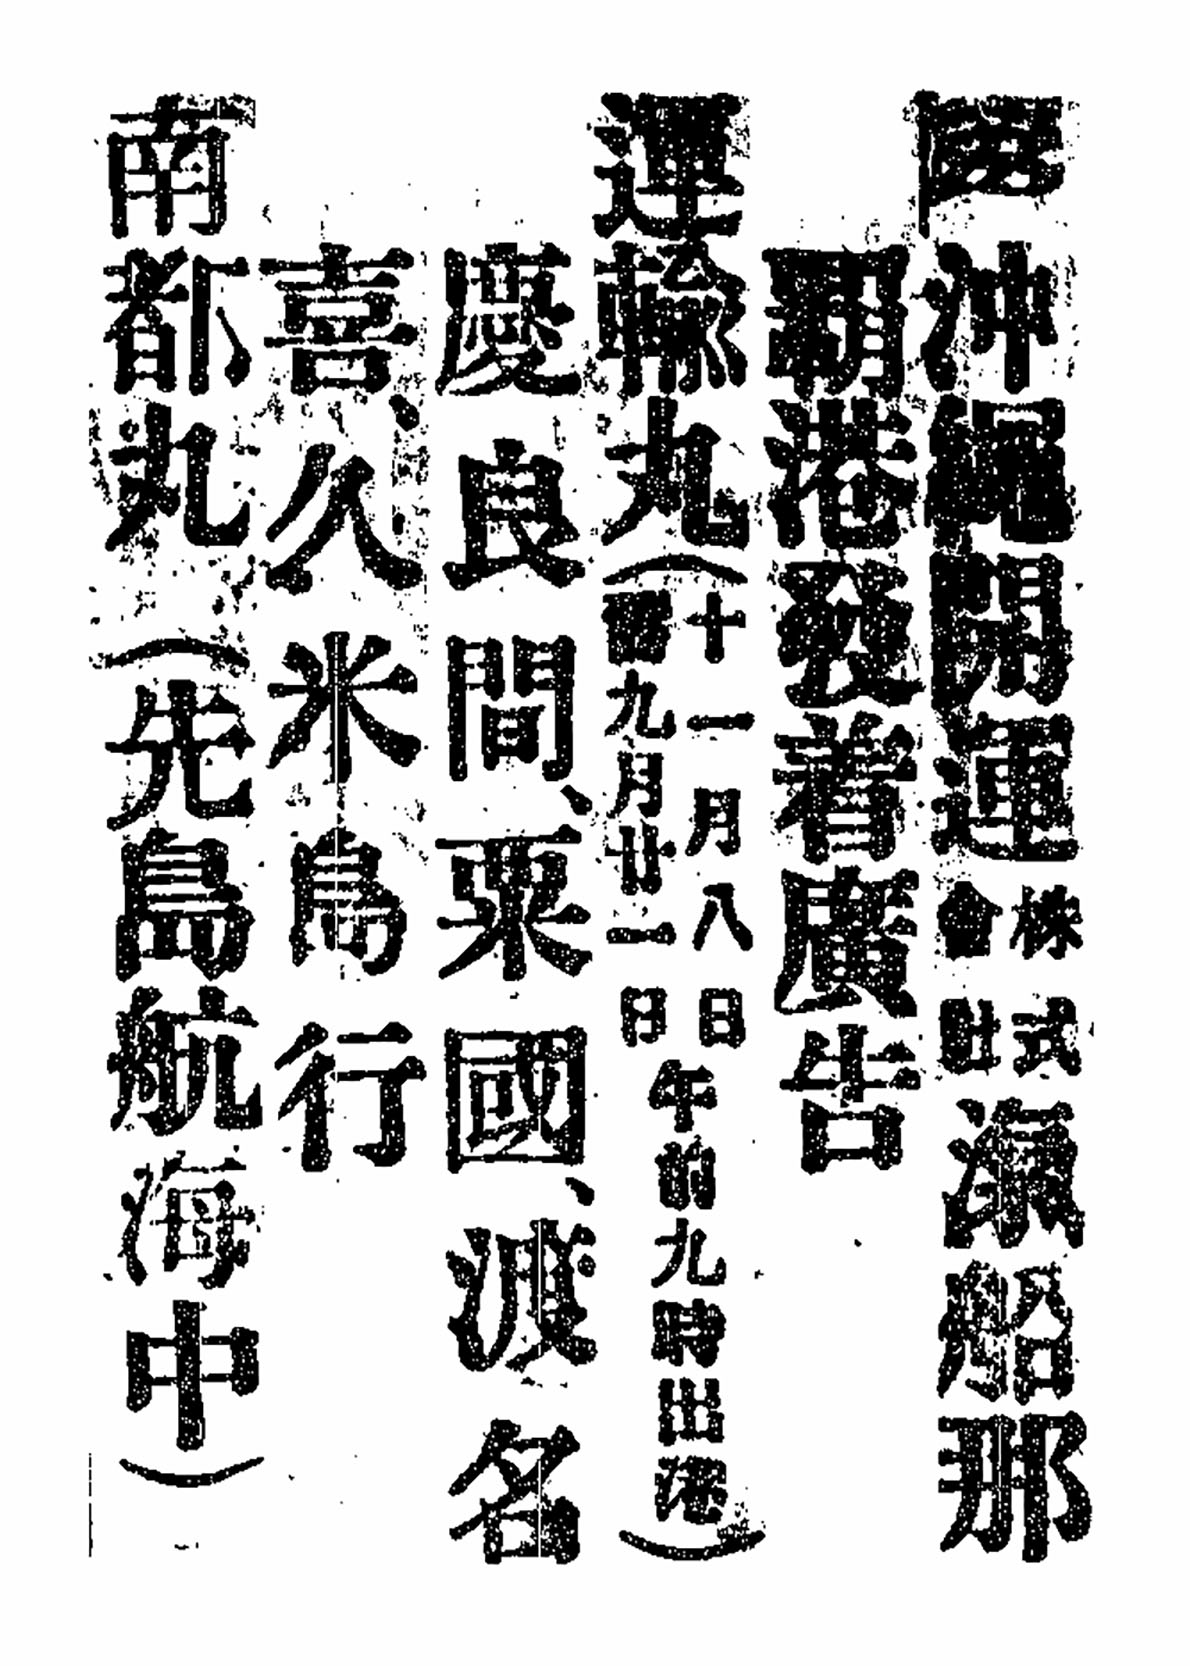 沖繩開運株式會社滊船那
覇港發着廣告
運輸丸(十一月八日
舊九月廿一日午前九時出港)
慶良間、粟國、渡名
喜、久米島行
南都丸(先島航海中)